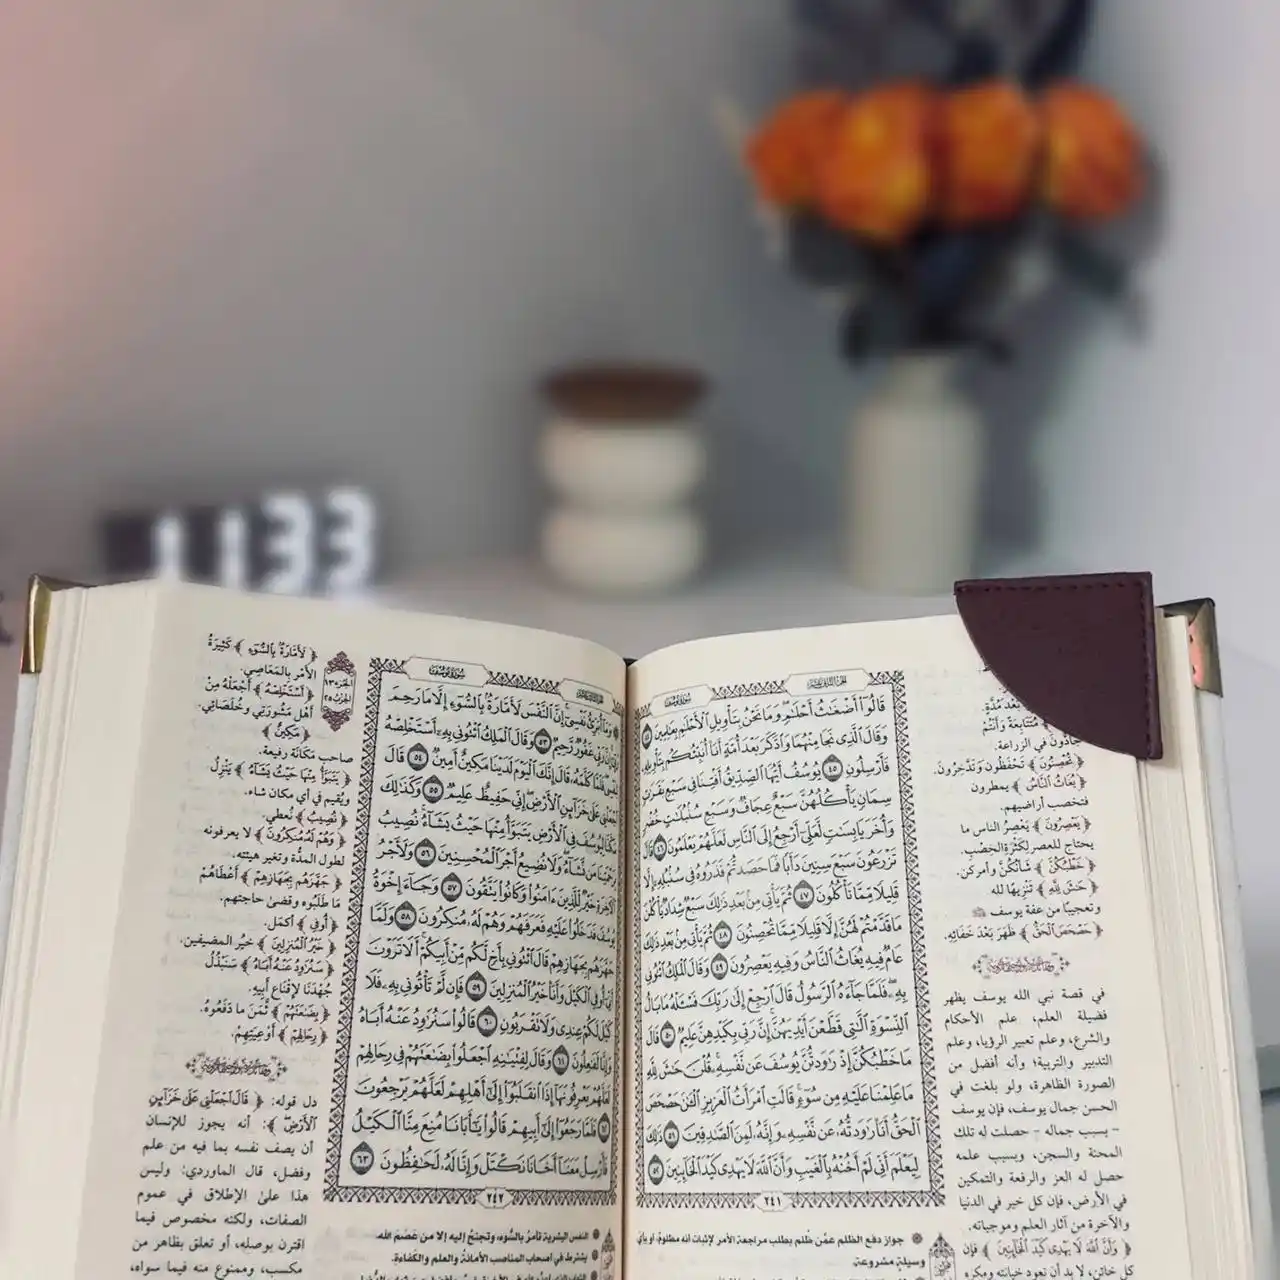 1133
الجزء الثاني عشر
سورة يوسف
قَالُوٓا۟ أَضْغَٰثُ أَحْلَٰمٍ وَمَا نَحْنُ بِتَأْوِيلِ ٱلْأَحْلَٰمِ بِعَٰلِمِينَ ٤٤
وَقَالَ ٱلَّذِى نَجَا مِنْهُمَا وَٱدَّكَرَ بَعْدَ أُمَّةٍ أَنَا۠ أُنَبِّئُكُم بِتَأْوِيلِهِۦ
فَأَرْسِلُونِ ٤٥ يُوسُفُ أَيُّهَا ٱلصِّدِّيقُ أَفْتِنَا فِى سَبْعِ بَقَرَٰتٍ
سِمَانٍ يَأْكُلُهُنَّ سَبْعٌ عِجَافٌ وَسَبْعِ سُنۢبُلَٰتٍ خُضْرٍ
وَأُخَرَ يَابِسَٰتٍ لَّعَلِّىٓ أَرْجِعُ إِلَى ٱلنَّاسِ لَعَلَّهُمْ يَعْلَمُونَ ٤٦ قَالَ
تَزْرَعُونَ سَبْعَ سِنِينَ دَأَبًا فَمَا حَصَدتُّمْ فَذَرُوهُ فِى سُنۢبُلِهِۦٓ إِلَّا
قَلِيلًا مِّمَّا تَأْكُلُونَ ٤٧ ثُمَّ يَأْتِى مِنۢ بَعْدِ ذَٰلِكَ سَبْعٌ شِدَادٌ يَأْكُلْنَ
مَا قَدَّمْتُمْ لَهُنَّ إِلَّا قَلِيلًا مِّمَّا تُحْصِنُونَ ٤٨ ثُمَّ يَأْتِى مِنۢ بَعْدِ ذَٰلِكَ
عَامٌ فِيهِ يُغَاثُ ٱلنَّاسُ وَفِيهِ يَعْصِرُونَ ٤٩ وَقَالَ ٱلْمَلِكُ ٱئْتُونِى
بِهِۦ فَلَمَّا جَآءَهُ ٱلرَّسُولُ قَالَ ٱرْجِعْ إِلَىٰ رَبِّكَ فَسْـَٔلْهُ مَا بَالُ
ٱلنِّسْوَةِ ٱلَّٰتِى قَطَّعْنَ أَيْدِيَهُنَّ إِنَّ رَبِّى بِكَيْدِهِنَّ عَلِيمٌ ٥٠ قَالَ
مَا خَطْبُكُنَّ إِذْ رَٰوَدتُّنَّ يُوسُفَ عَن نَّفْسِهِۦ قُلْنَ حَٰشَ لِلَّهِ
مَا عَلِمْنَا عَلَيْهِ مِن سُوٓءٍ قَالَتِ ٱمْرَأَتُ ٱلْعَزِيزِ ٱلْـَٰٔنَ حَصْحَصَ
ٱلْحَقُّ أَنَا۠ رَٰوَدتُّهُۥ عَن نَّفْسِهِۦ وَإِنَّهُۥ لَمِنَ ٱلصَّٰدِقِينَ ٥١ ذَٰلِكَ
لِيَعْلَمَ أَنِّى لَمْ أَخُنْهُ بِٱلْغَيْبِ وَأَنَّ ٱللَّهَ لَا يَهْدِى كَيْدَ ٱلْخَآئِنِينَ ٥٢
٢٤١
بَعْدَ مُدَّةٍ.
مُتَتَابِعَةً وَأَنْتُم
جَادُّونَ في الزراعة.
﴿تُحْصِنُونَ﴾ تَحْفَظُونَ وَتَدَّخِرُونَ.
﴿يُغَاثُ ٱلنَّاسُ﴾ يمطرون
فتخصب أراضيهم.
﴿يَعْصِرُونَ﴾ يَعْصِرُ الناس ما
يحتاج للعصر لِكَثْرَةِ الخِصْبِ.
﴿خَطْبُكُنَّ﴾ شَأْنُكُنَّ وأمركن.
﴿حَٰشَ لِلَّهِ﴾ تَنْزِيهًا لله
وتعجيبًا من عفة يوسف
﴿حَصْحَصَ ٱلْحَقُّ﴾ ظَهَرَ بَعْدَ خَفَائِهِ.
في قصة نبي الله يوسف يظهر
فضيلة العلم، علم الأحكام
والشرع، وعلم تعبير الرؤيا، وعلم
التدبير والتربية؛ وأنه أفضل من
الصورة الظاهرة، ولو بلغت في
الحسن جمال يوسف، فإن يوسف
- بسبب جماله - حصلت له تلك
المحنة والسجن، وبسبب علمه
حصل له العز والرفعة والتمكين
في الأرض، فإن كل خير في الدنيا
والآخرة من آثار العلم وموجباته.
﴿وَأَنَّ ٱللَّهَ لَا يَهْدِى كَيْدَ ٱلْخَآئِنِينَ﴾ فإن
كل خائن، لا بد أن تعود خيانته ومكره
جواز دفع الظلم عمّن ظلم بطلب مراجعة الأمر لإثبات أنه مظلوم، أو بأي
وسيلة مشروعة.
سورة يوسف
وَمَآ أُبَرِّئُ نَفْسِىٓ إِنَّ ٱلنَّفْسَ لَأَمَّارَةٌۢ بِٱلسُّوٓءِ إِلَّا مَا رَحِمَ
رَبِّىٓ إِنَّ رَبِّى غَفُورٌ رَّحِيمٌ ٥٣ وَقَالَ ٱلْمَلِكُ ٱئْتُونِى بِهِۦٓ أَسْتَخْلِصْهُ
لِنَفْسِى فَلَمَّا كَلَّمَهُۥ قَالَ إِنَّكَ ٱلْيَوْمَ لَدَيْنَا مَكِينٌ أَمِينٌ ٥٤ قَالَ
ٱجْعَلْنِى عَلَىٰ خَزَآئِنِ ٱلْأَرْضِ إِنِّى حَفِيظٌ عَلِيمٌ ٥٥ وَكَذَٰلِكَ
مَكَّنَّا لِيُوسُفَ فِى ٱلْأَرْضِ يَتَبَوَّأُ مِنْهَا حَيْثُ يَشَآءُ نُصِيبُ
بِرَحْمَتِنَا مَن نَّشَآءُ وَلَا نُضِيعُ أَجْرَ ٱلْمُحْسِنِينَ ٥٦ وَلَأَجْرُ
ٱلْـَٔاخِرَةِ خَيْرٌ لِّلَّذِينَ ءَامَنُوا۟ وَكَانُوا۟ يَتَّقُونَ ٥٧ وَجَآءَ إِخْوَةُ
يُوسُفَ فَدَخَلُوا۟ عَلَيْهِ فَعَرَفَهُمْ وَهُمْ لَهُۥ مُنكِرُونَ ٥٨ وَلَمَّا
جَهَّزَهُم بِجَهَازِهِمْ قَالَ ٱئْتُونِى بِأَخٍ لَّكُم مِّنْ أَبِيكُمْ أَلَا تَرَوْنَ
أَنِّىٓ أُوفِى ٱلْكَيْلَ وَأَنَا۠ خَيْرُ ٱلْمُنزِلِينَ ٥٩ فَإِن لَّمْ تَأْتُونِى بِهِۦ فَلَا
كَيْلَ لَكُمْ عِندِى وَلَا تَقْرَبُونِ ٦٠ قَالُوا۟ سَنُرَٰوِدُ عَنْهُ أَبَاهُ
وَإِنَّا لَفَٰعِلُونَ ٦١ وَقَالَ لِفِتْيَٰنِهِ ٱجْعَلُوا۟ بِضَٰعَتَهُمْ فِى رِحَالِهِمْ
لَعَلَّهُمْ يَعْرِفُونَهَآ إِذَا ٱنقَلَبُوٓا۟ إِلَىٰٓ أَهْلِهِمْ لَعَلَّهُمْ يَرْجِعُونَ
٦٢ فَلَمَّا رَجَعُوٓا۟ إِلَىٰٓ أَبِيهِمْ قَالُوا۟ يَٰٓأَبَانَا مُنِعَ مِنَّا ٱلْكَيْلُ
فَأَرْسِلْ مَعَنَآ أَخَانَا نَكْتَلْ وَإِنَّا لَهُۥ لَحَٰفِظُونَ ٦٣
٢٤٢
الجزء ١٣
الحزب ٢٥
﴿لَأَمَّارَةٌۢ بِٱلسُّوٓءِ﴾ كَثِيرَةُ
الأَمْرِ بالمَعَاصِي.
﴿أَسْتَخْلِصْهُ﴾ أَجْعَلْهُ مِنْ
أَهْلِ مَشُورَتِي وخُلَصَائِي.
﴿مَكِينٌ﴾
صاحب مَكَانَة رفيعة.
﴿يَتَبَوَّأُ مِنْهَا حَيْثُ يَشَآءُ﴾ يَنْزِلُ
ويُقيم في أي مكان شاء.
﴿نُصِيبُ﴾ نُعطي.
﴿وَهُمْ لَهُۥ مُنكِرُونَ﴾ لا يعرفونه
لطول المدَّة وتغير هيئته.
﴿جَهَّزَهُم بِجَهَازِهِمْ﴾ أَعْطَاهُمْ
مَا طَلَبُوه وقضىٰ حاجتهم.
﴿أُوفِى﴾ أكمل.
﴿خَيْرُ ٱلْمُنزِلِينَ﴾ خيرُ المضيفين.
﴿سَنُرَٰوِدُ عَنْهُ أَبَاهُ﴾ سَنَبْذُل
جُهْدَنَا لإِقْنَاعِ أبِيهِ.
﴿بِضَٰعَتَهُمْ﴾ ثَمَنَ مَا دَفَعُوهُ.
﴿رِحَالِهِمْ﴾ أَوْعِيَتِهِمْ.
دل قوله: ﴿قَالَ ٱجْعَلْنِى عَلَىٰ خَزَآئِنِ
ٱلْأَرْضِ﴾: أنه يجوز للإنسان
أن يصف نفسه بما فيه من علم
وفضل، قال الماوردي: وليس
هذا علىٰ الإطلاق في عموم
الصفات، ولكنه مخصوص فيما
اقترن بوصله، أو تعلق بظاهر من
مكسب، وممنوع منه فيما سواه،
النفس البشرية تأمرُ بالسُّوء، وتجنحُ إليه إلا من عَصَمَ الله.
يشترط في أصحاب المناصب الأمانةُ والعلم والكفاءة.